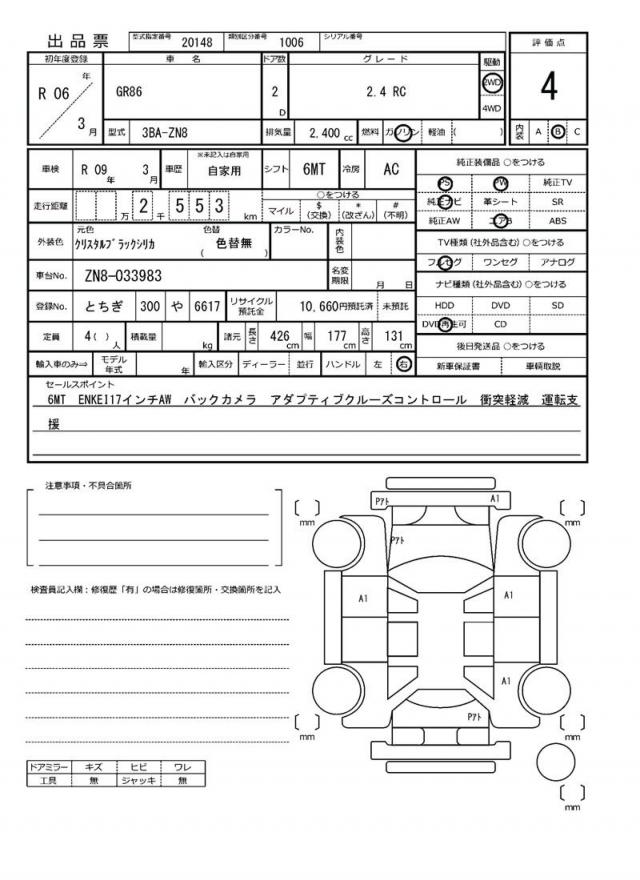 出品票 型式指定番号 20148 類別区分番号 1006 シリアル番号
初年度登録 車名 ドア数 グレード 駆動 評価点
R 06 年 3 月 GR86 2 D 2.4 RC 2WD 4WD 4
型式 3BA-ZN8 排気量 2.400 cc 燃料 ガソリン 軽油 ( ) 内装 A B C
車検 R 09 年 3 月 車歴 ※未記入は自家用 自家用 シフト 6MT 冷房 AC 純正装備品 ○をつける
PS PW 純正TV
走行距離 万 2 千 5 5 3 km ○をつける 純正ナビ 革シート SR
マイル $ (交換) * (改ざん) # (不明) 純正AW エアB ABS
外装色 元色 クリスタルブラックシリカ 色替 ( 色替無 ) カラーNo. 内装色 TV種類 (社外品含む) ○をつける
フルセグ ワンセグ アナログ
車台No. ZN8-033983 名変期限 月 日 ナビ種類 (社外品含む) ○をつける
登録No. とちぎ 300 や 6617 リサイクル預託金 10,660円預託済 未預託 HDD DVD SD
DVD再生可 CD
定員 4 ( ) 人 積載量 kg 諸元 長さ 426 cm 幅 177 cm 高さ 131 cm 後日発送品 ○をつける
輸入車のみ⇒ モデル年式 年 輸入区分 ディーラー 並行 ハンドル 左 右 新車保証書 車輌取説
セールスポイント
6MT ENKEI17インチAW バックカメラ アダプティブクルーズコントロール 衝突軽減 運転支
援
注意事項・不具合箇所
Pアト A1
mm mm
Pアト
検査員記入欄：修復歴「有」の場合は修復箇所・交換箇所を記入
A1 A1
A1
Pアト
mm mm
ドアミラー キズ ヒビ ワレ
工具 無 ジャッキ 無
mm